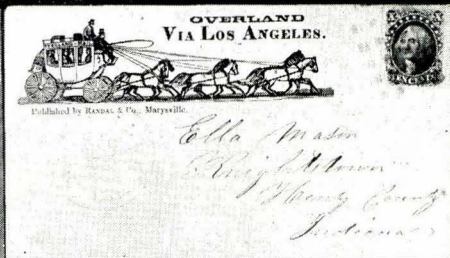 OVERLAND
VIA LOS ANGELES.
Published by RANDAL & Co., Marysville.
Ella Mason
Knightstown
Henry County
Indiana